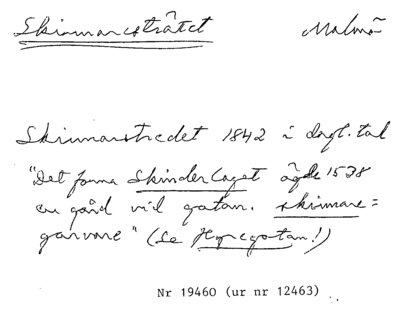 Skinnaresträtet Malmö
Skinnarestredet 1842 i dagl. tal
"Det forna Skinderlaget ägde 1538
en gård vid gatan. skinnare =
garvare" (Se Hyregatan!)
Nr 19460 (ur nr 12463)